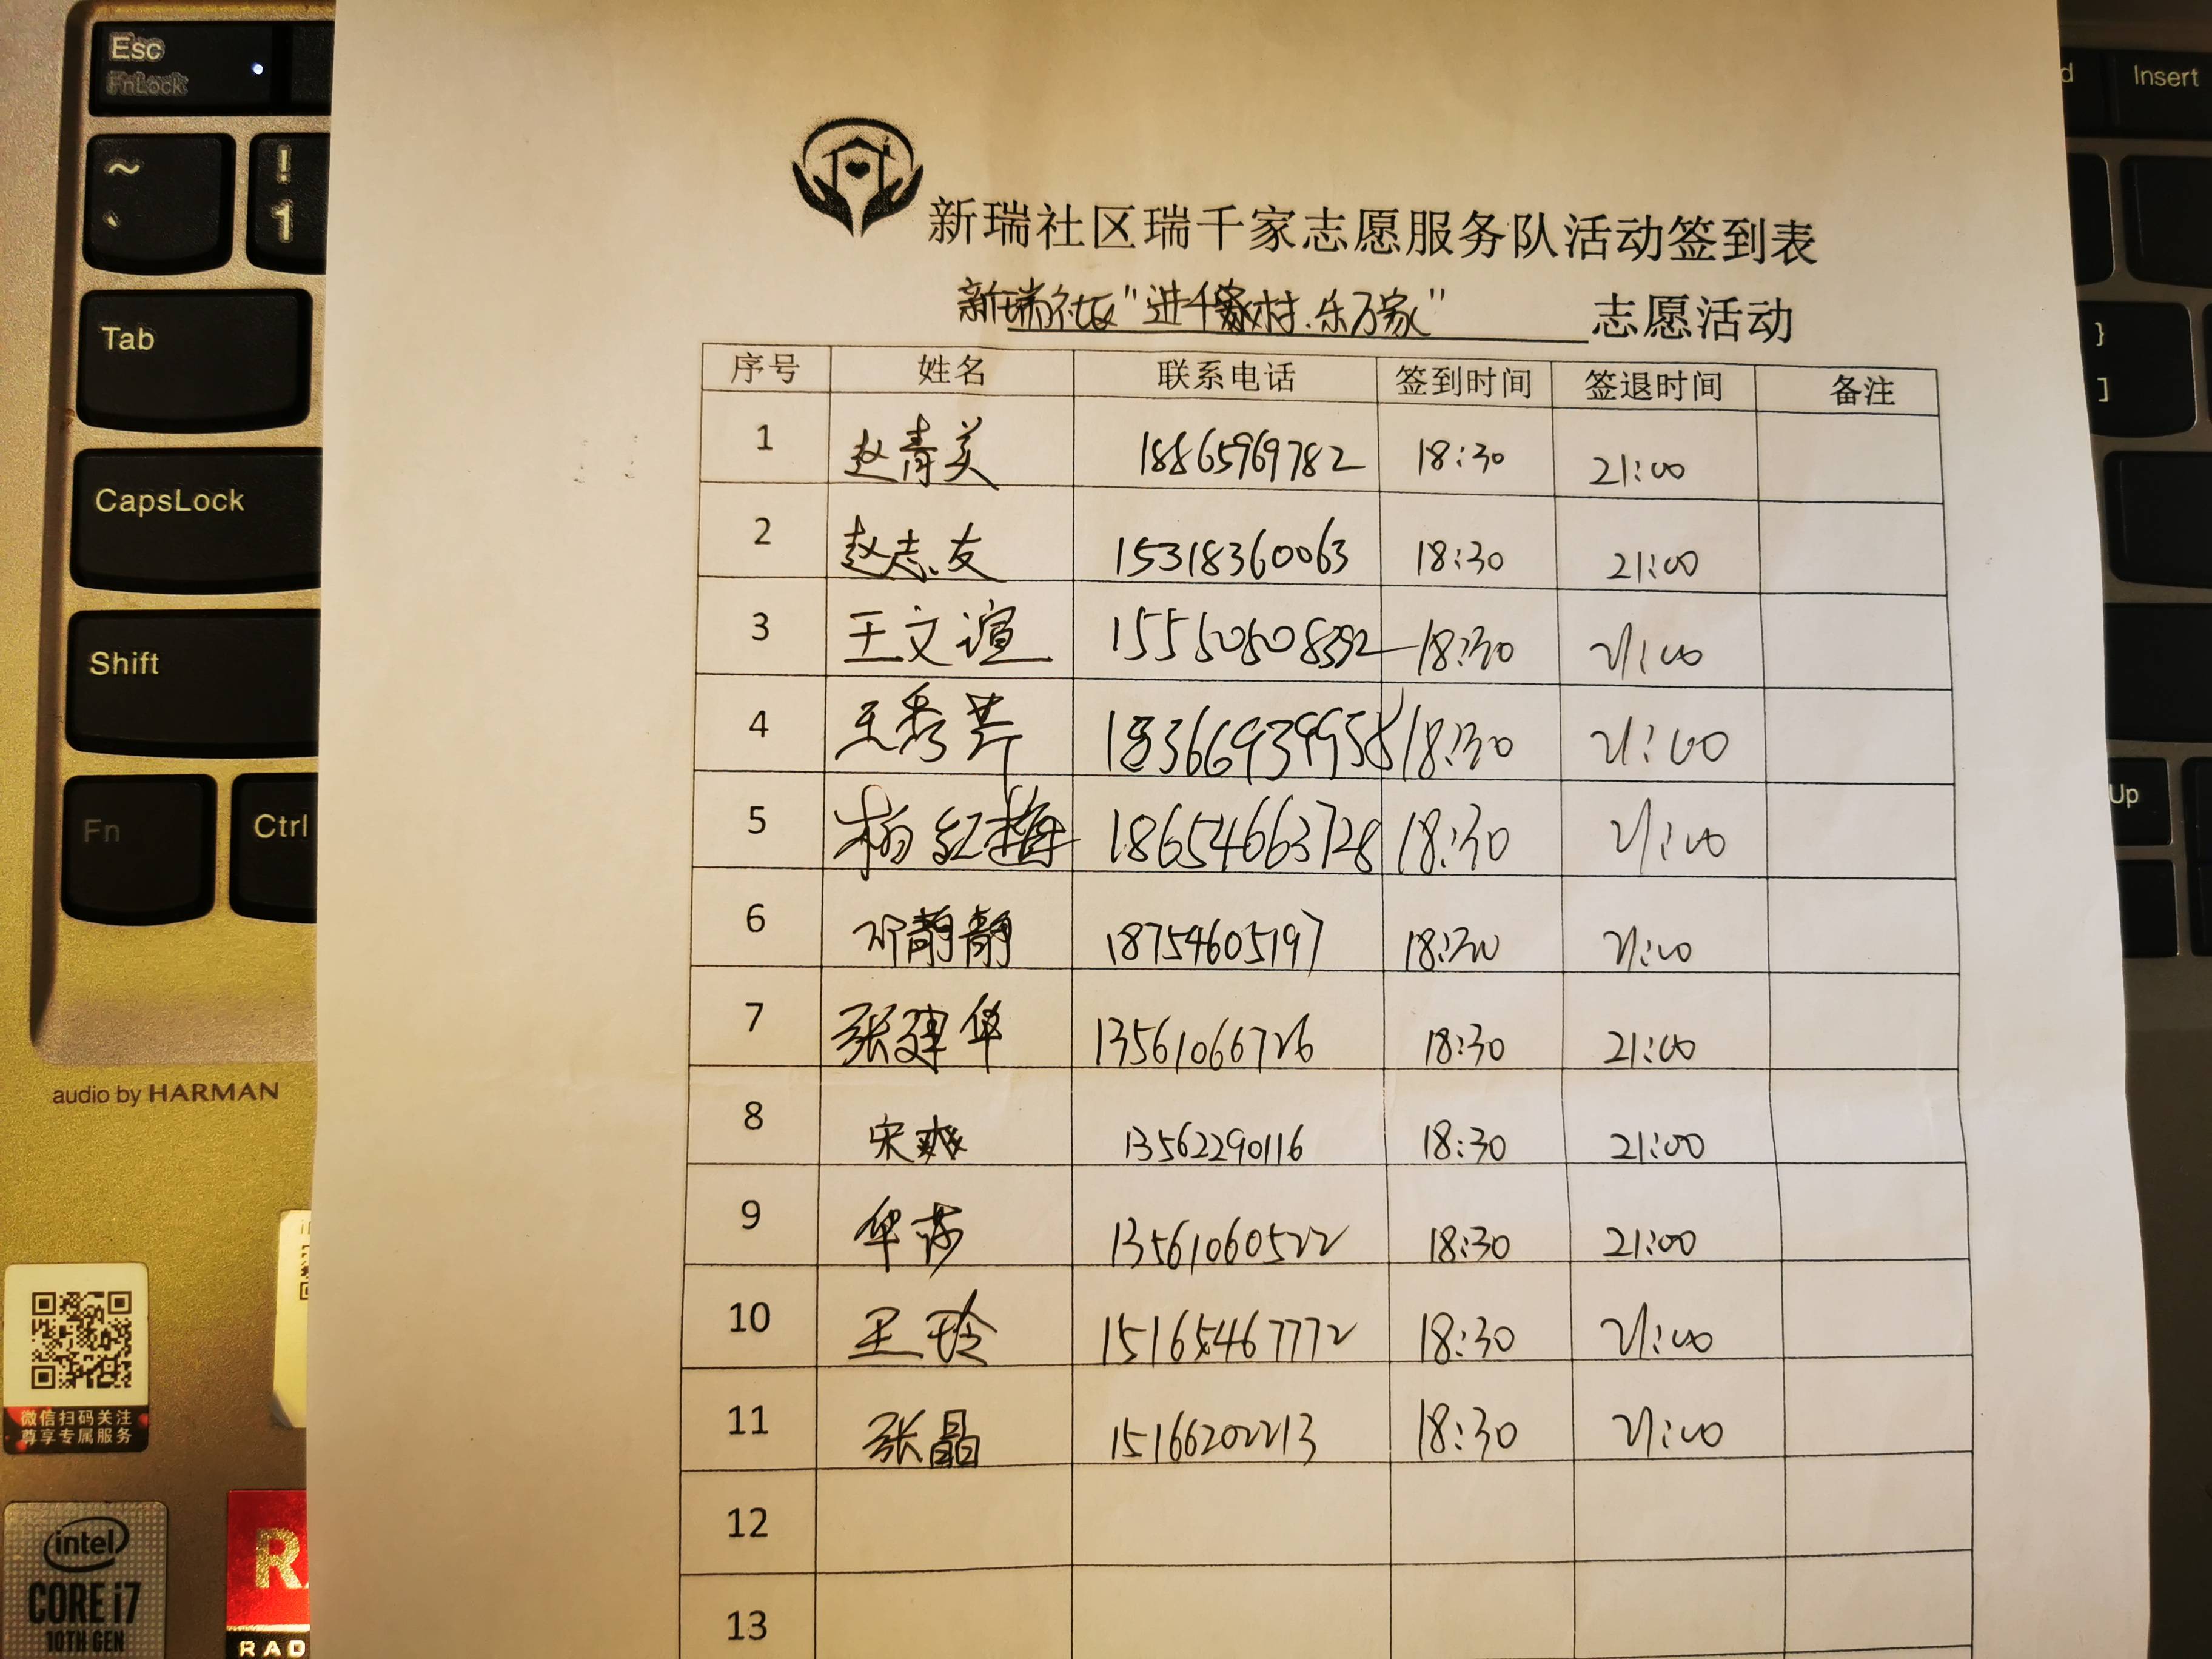 Esc
FnLock
~
!
、
1
Tab
CapsLock
Shift
Fn
Ctrl
audio by HARMAN
微信扫码关注
尊享专属服务
intel
CORE i7
10TH GEN
RAD
d
Insert
}
]
Up
新瑞社区瑞千家志愿服务队活动签到表
新瑞社区"进千家村.乐万家" 志愿活动
序号 姓名 联系电话 签到时间 签退时间 备注
1 赵青美 18865969782 18:30 21:00
2 赵志友 15318360063 18:30 21:00
3 王文谊 18:30 21:00
4 王秀芹 18366939958 18:30 21:00
5 杨红梅 18654663728 18:30 21:00
6 邓静静 18754605197 18:30 21:00
7 张建华 13561066726 18:30 21:00
8 宋爽 13562290116 18:30 21:00
9 华莎 13561060522 18:30 21:00
10 王玲 15165467772 18:30 21:00
11 张晶 15166202213 18:30 21:00
12
13